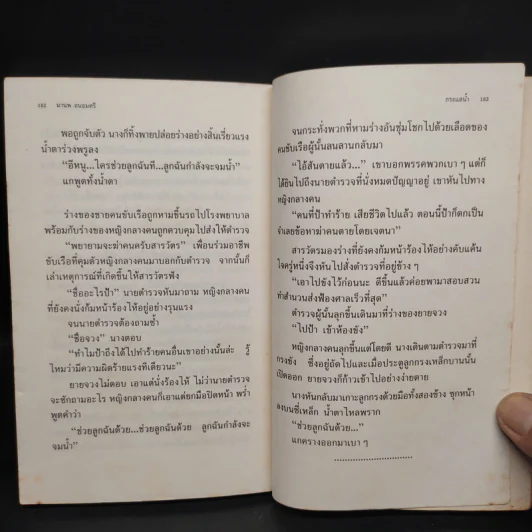 182 มานพ ถนอมศรี
พอถูกจับตัว นางก็ทิ้งพายปล่อยร่างอย่างสิ้นเรี่ยวแรง
น้ำตาร่วงพรูลง
“อีหนู...ใครช่วยลูกฉันที...ลูกฉันกำลังจะจมน้ำ”
แกพูดทั้งน้ำตา
ร่างของชายคนขับเรือถูกหามขึ้นรถไปโรงพยาบาล
พร้อมกับร่างของหญิงกลางคนถูกควบคุมไปส่งให้ตำรวจ
“พยายามจะฆ่าคนครับสารวัตร” เพื่อนร่วมอาชีพ
ขับเรือที่คุมตัวหญิงกลางคนมาบอกกับตำรวจ จากนั้นก็
เล่าเหตุการณ์ที่เกิดขึ้นให้สารวัตรฟัง
“ชื่ออะไรป้า” นายตำรวจหันมาถาม หญิงกลางคน
ที่ยังคงนั่งก้มหน้าร้องไห้อยู่อย่างรุนแรง
จนนายตำรวจต้องถามซ้ำ
“ชื่อจวง” นางตอบ
“ทำไมป้าถึงได้ไปทำร้ายคนอื่นเขาอย่างนั้นล่ะ รู้
ไหมว่ามีความผิดร้ายแรงทีเดียวนะ”
ยายจวงไม่ตอบ เอาแต่นั่งร้องไห้ ไม่ว่านายตำรวจ
จะซักถามอะไร หญิงกลางคนก็เอาแต่ยกมือปิดหน้า พร่ำ
พูดคำว่า
“ช่วยลูกฉันด้วย...ช่วยลูกฉันด้วย ลูกฉันกำลังจะ
จมน้ำ”
กระแสน้ำ 183
จนกระทั่งพวกที่หามร่างอันชุ่มโชกไปด้วยเลือดของ
คนขับเรือผู้นั้นลนลานกลับมา
“ไอ้สันตายแล้ว...” เขาบอกพรรคพวกเบา ๆ แต่ก็
ได้ยินไปถึงนายตำรวจที่นั่งหมดปัญญาอยู่ เขาหันไปทาง
หญิงกลางคน
“คนที่ป้าทำร้าย เสียชีวิตไปแล้ว ตอนนี้ป้าก็ตกเป็น
จำเลยข้อหาฆ่าคนตายโดยเจตนา”
สารวัตรมองร่างที่ยังคงก้มหน้าร้องไห้อย่างคับแค้น
ใจครู่หนึ่งจึงหันไปสั่งตำรวจที่อยู่ข้าง ๆ
“เอาไปขังไว้ก่อนนะ ดีขึ้นแล้วค่อยพามาสอบสวน
ทำสำนวนส่งฟ้องศาลเร็วที่สุด”
ตำรวจผู้นั้นลุกขึ้นเดินมาที่ร่างของยายจวง
“ไปป้า เข้าห้องขัง”
หญิงกลางคนลุกขึ้นแต่โดยดี นางเดินตามตำรวจมาที่
กรงขัง ซึ่งอยู่ถัดไปและเมื่อประตูลูกกรงเหล็กบานนั้น
เปิดออก ยายจวงก็ก้าวเข้าไปอย่างง่ายดาย
นางหันกลับมาเกาะลูกกรงด้วยมือทั้งสองข้าง ซุกหน้า
ลงบนซี่เหล็ก น้ำตาไหลพราก
“ช่วยลูกฉันด้วย...”
แกครางออกมาเบา ๆ
..............................